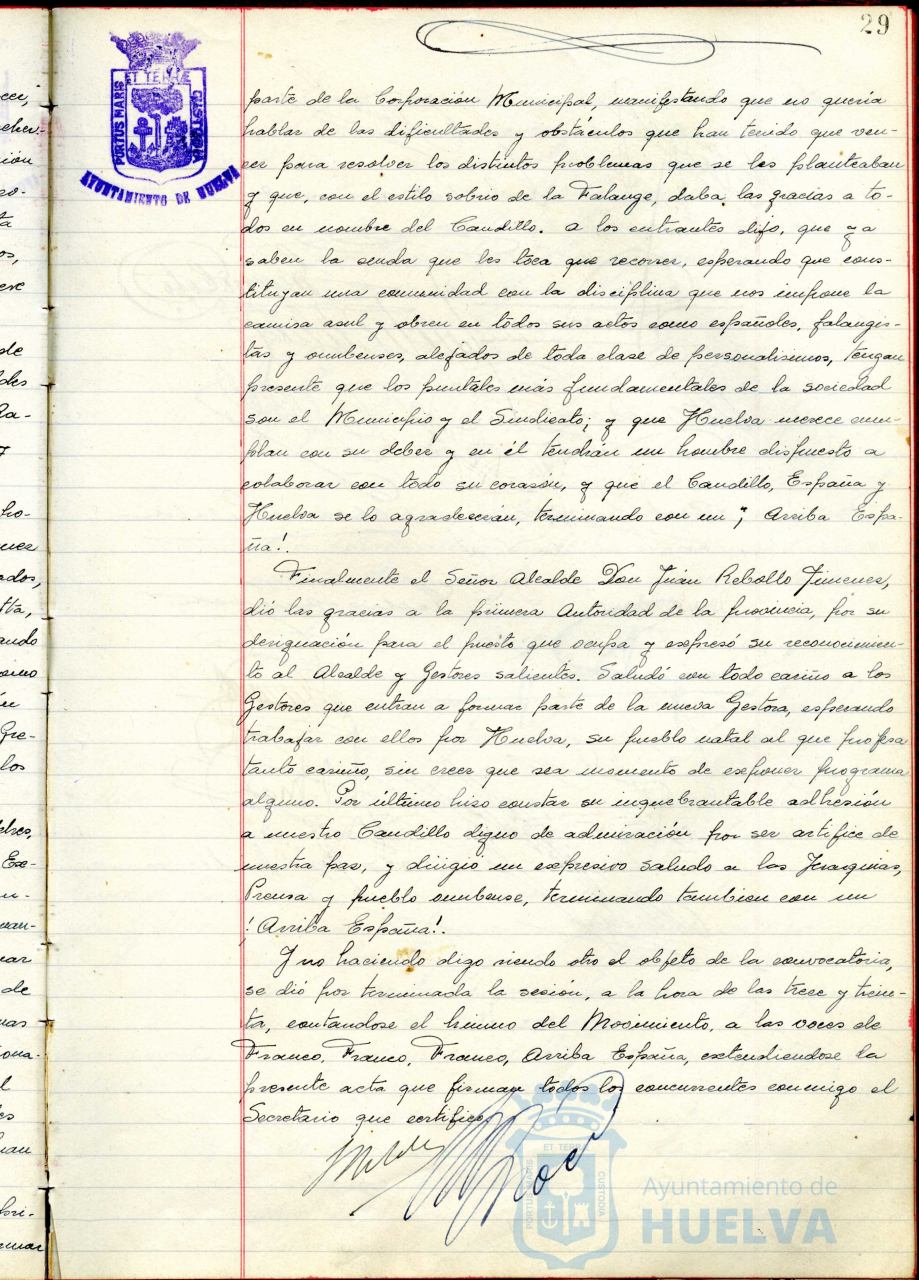 29
ET TERRÆ
PORTUS MARIS
CUSTODIA
AYUNTAMIENTO DE HUELVA
parte de la Corporación Municipal, manifestando que no quería
hablar de las dificultades y obstáculos que han tenido que ven-
cer para resolver los distintos problemas que se les planteaban
y que, con el estilo sobrio de la Falange, daba las gracias a to-
dos en nombre del Caudillo. A los entrantes dijo, que ya
saben la senda que les toca que recorrer, esperando que cons-
tituyan una comunidad con la disciplina que nos impone la
camisa asul y obren en todos sus actos como españoles, falangis-
tas y onubenses, alejados de toda clase de personalismos, tengan
presente que los puntales más fundamentales de la sociedad
son el Municipio y el Sindicato; y que Huelva merece cum-
plan con su deber y en él tendrán un hombre dispuesto a
colaborar con todo su corasón, y que el Caudillo, España y
Huelva se lo agradecerán, terminando con un ¡ Arriba Espa-
ña!.
Finalmente el Señor Alcalde Don Juán Rebollo Jimenes,
dió las gracias a la primera Autoridad de la provincia, por su
designación para el puesto que ocupa y expresó su reconocimien-
to al Alcalde y Gestores salientes. Saludó con todo cariño a los
Gestores que entran a formar parte de la nueva Gestora, esperando
trabajar con ellos por Huelva, su pueblo natal al que profesa
tanto cariño, sin creer que sea momento de exponer programa
alguno. Por último hiso constar su inquebrantable adhesión
a nuestro Caudillo digno de admiración por ser artifice de
nuestra pas, y dirigió un expresivo saludo a las Jerarquias,
Prensa y pueblo onubense, terminando tambien con un
! Arriba España!.
Y no haciendo digo siendo otro el objeto de la convocatoria,
se dió por terminada la sesión, a la hora de las trece y trein-
ta, cantandose el himno del Movimiento, a las voces de
Franco, Franco, Franco, Arriba España, extendiendose la
presente acta que firman todos los concurrentes conmigo el
Secretario que certifico.
ET TERRÆ
PORTUS MARIS
CUSTODIA
Ayuntamiento de
HUELVA